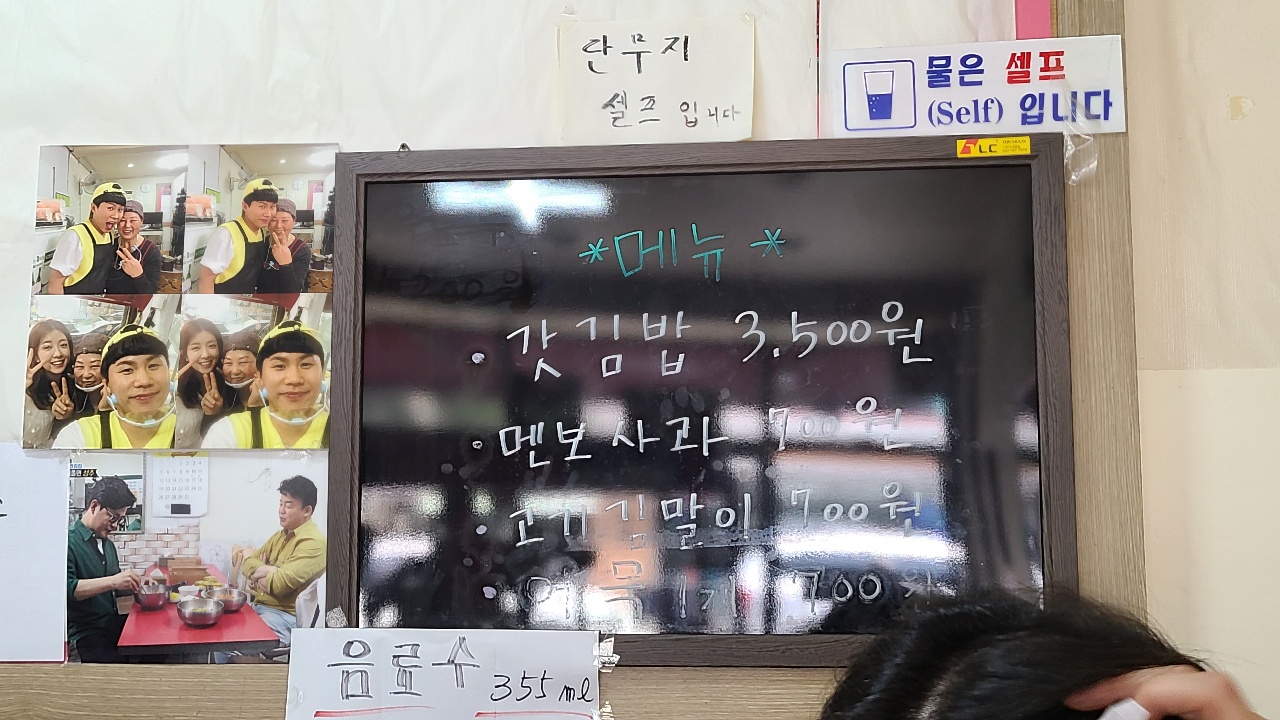 단무지
셀프 입니다
물은 셀프
(Self) 입니다
LC
*메뉴*
· 갓김밥 3.500원
· 멘보사과 700원
· 고기김말이 700원
· 700원
음료수 355ml